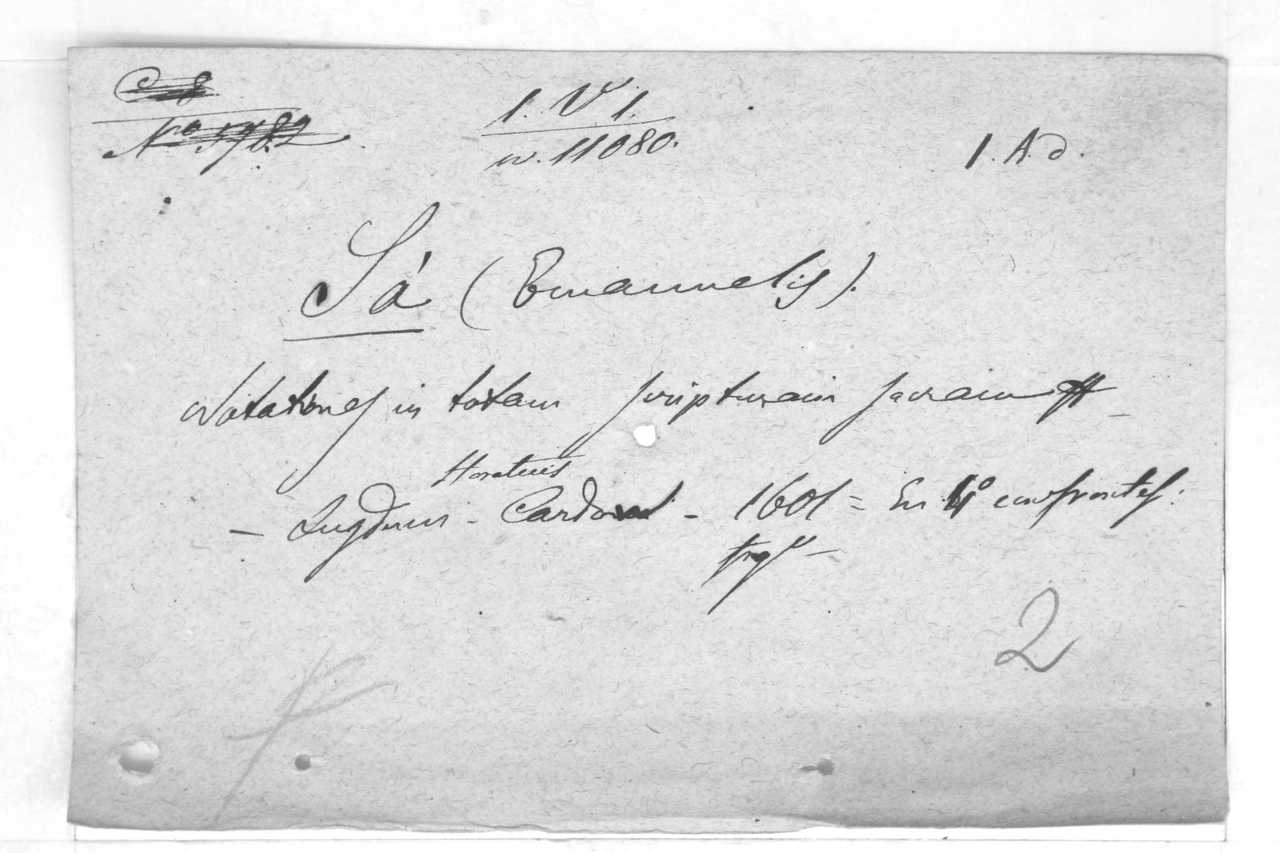 C 8
Nº 5782
1. V 1.
n. 11080.
1. A. d.
Sá (Emanuelis).
Notationes in totam scripturam sacram
Horatius
— Lugduni - Cardon - 1601 = En 4º con frontes:
2